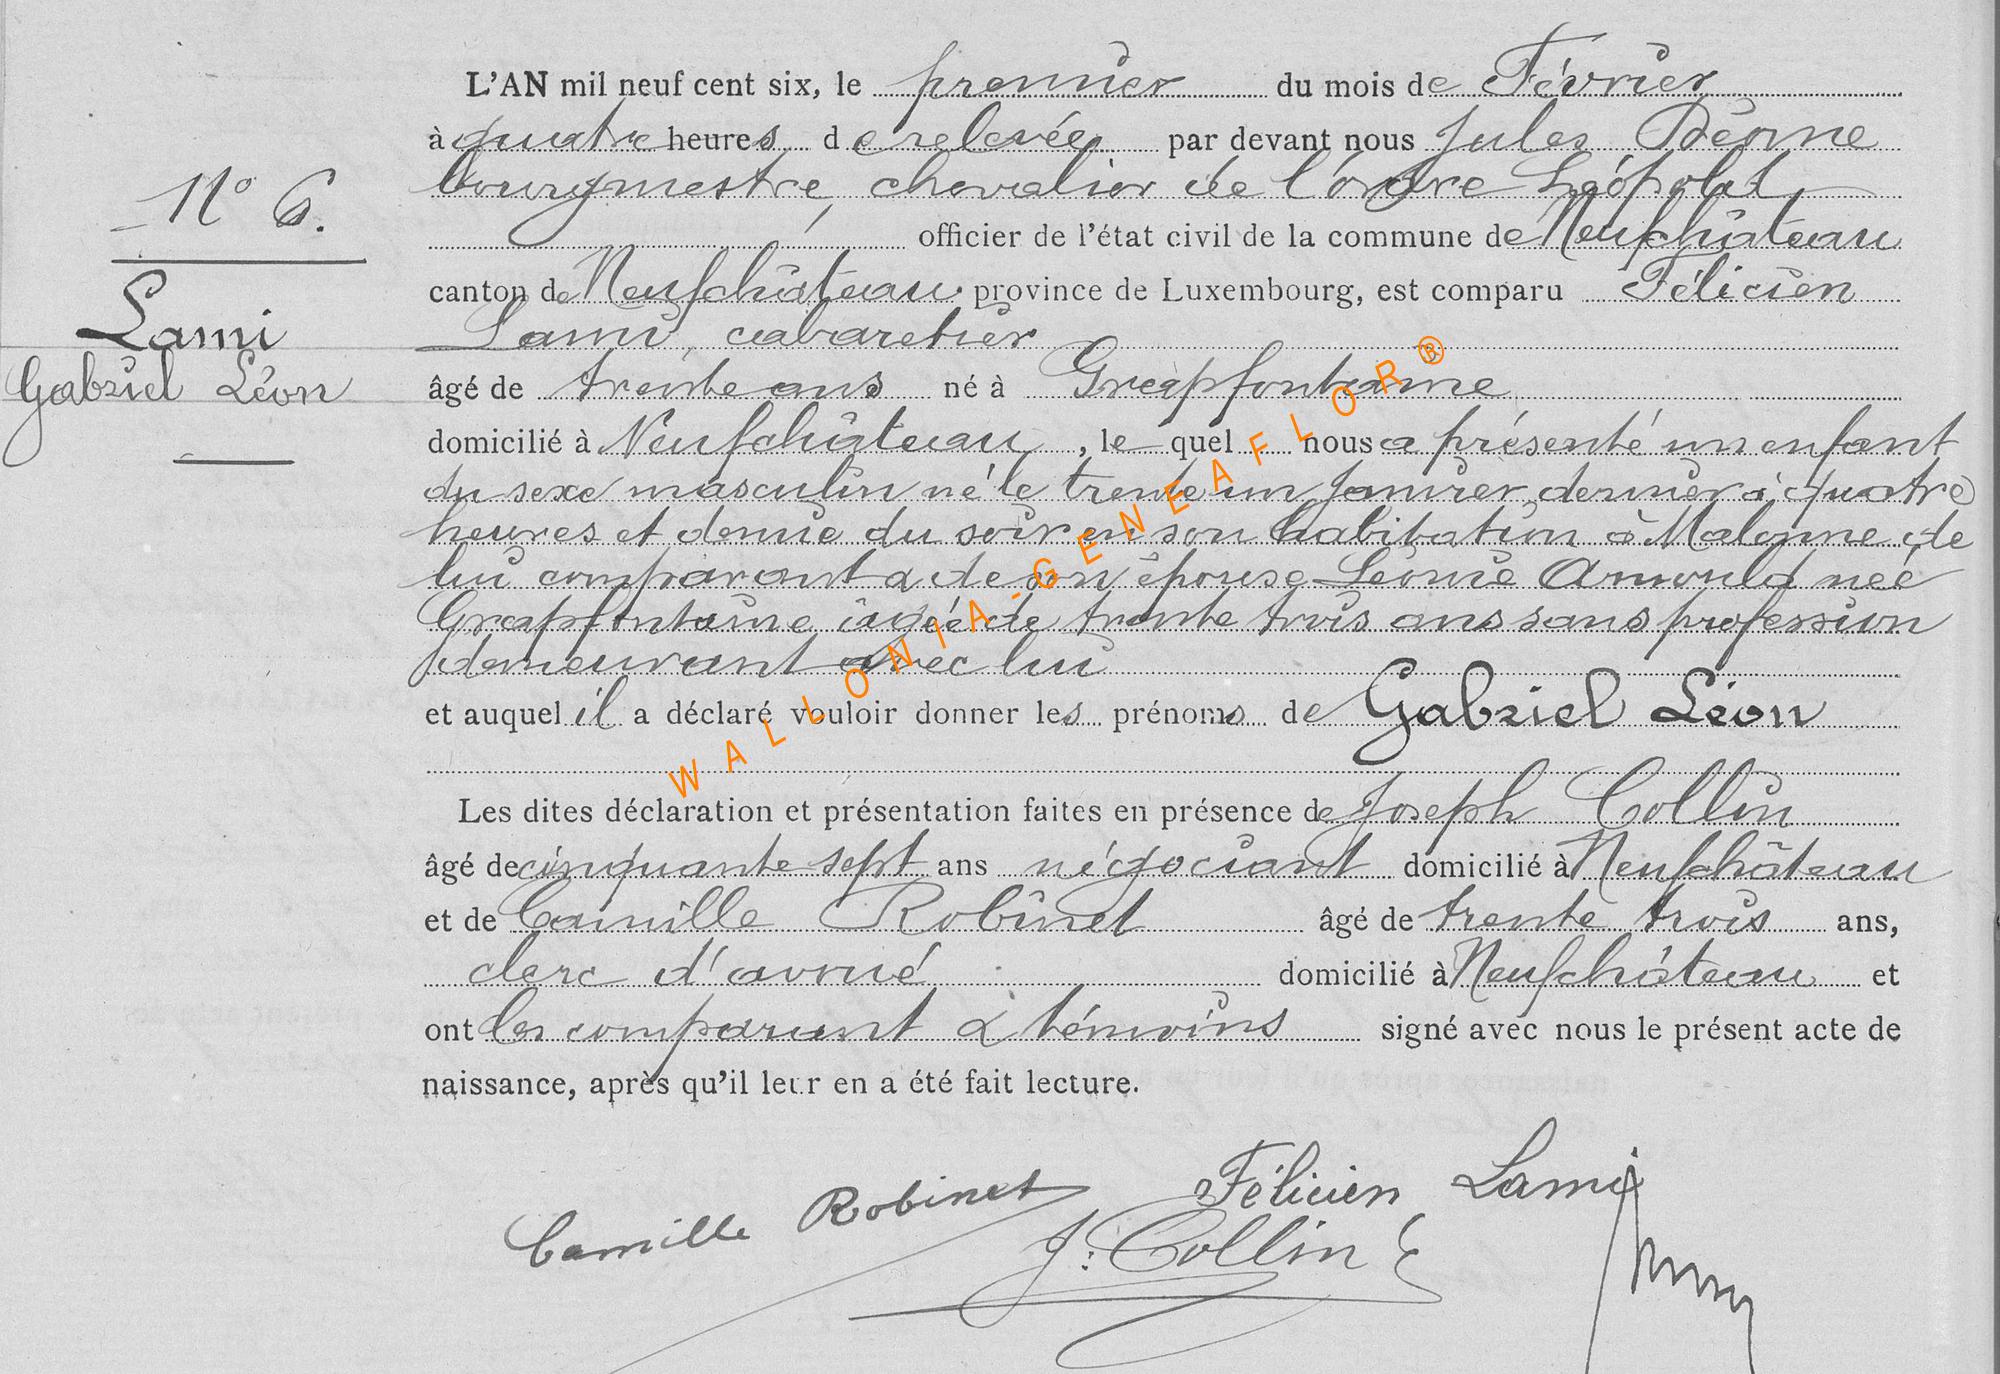 L'AN mil neuf cent six, le premier du mois de Février
à quatre heures de relevée par devant nous Jules
bourgmestre, chevalier de l'ordre Léopold
officier de l'état civil de la commune de Neufchâteau
canton de Neufchâteau province de Luxembourg, est comparu Félicien
Lami, cabaretier
âgé de trente ans né à Grapfontaine
domicilié à Neufchâteau, le quel nous a présenté un enfant
du sexe masculin né le trente un Janvier dernier à quatre
heures et demie du soir en son habitation à Malome de
lui comparant & de son épouse Léonie Arnould née
Grapfontaine âgée de trente trois ans sans profession
demeurant avec lui
et auquel il a déclaré vouloir donner les prénoms de Gabriel Léon
Les dites déclaration et présentation faites en présence de Joseph Collin
âgé de cinquante sept ans négociant domicilié à Neufchâteau
et de Camille Robinet âgé de trente trois ans,
clerc d'avoué domicilié à Neufchâteau et
ont les comparant & témoins signé avec nous le présent acte de
naissance, après qu'il leur en a été fait lecture.
N° 6.
Lami
Gabriel Léon
Camille Robinet
Félicien Lami
J. Collin
WALLONIA-GENEAFLOR®